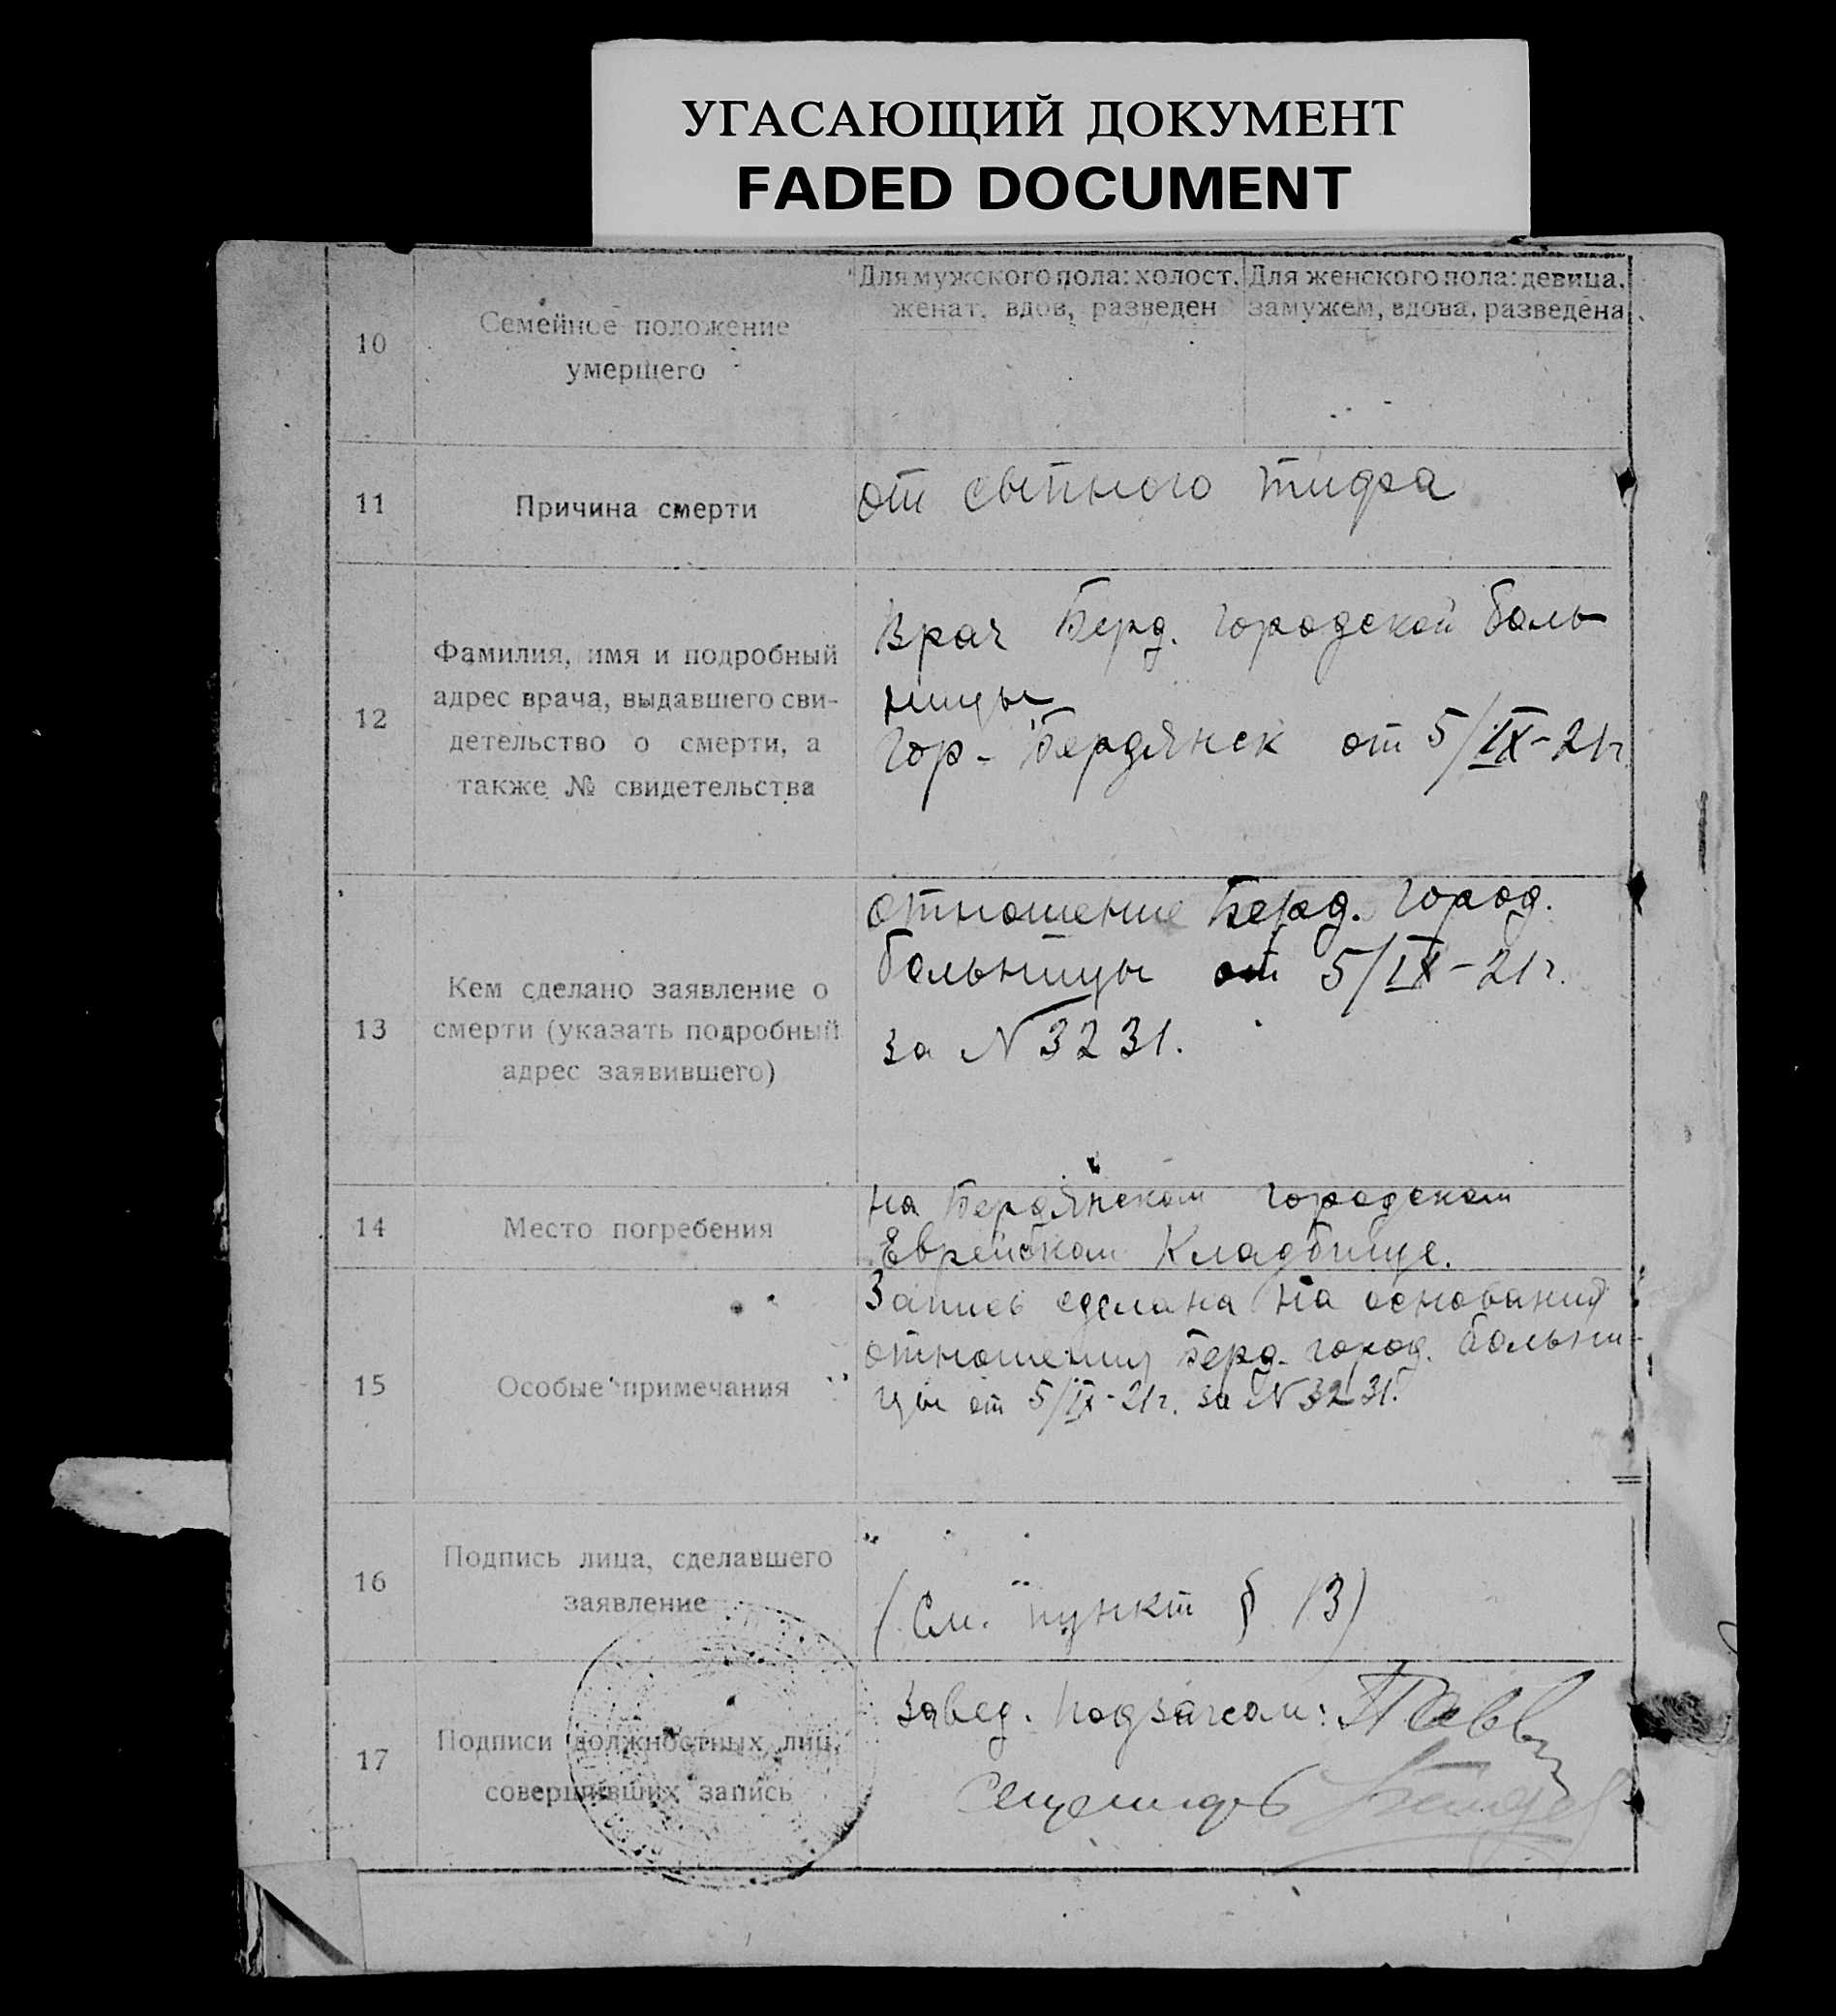 УГАСАЮЩИЙ ДОКУМЕНТ
FADED DOCUMENT
10
Семейное положение
умершего
Для мужского пола: холост,
женат, вдов, разведен
Для женского пола: девица,
замужем, вдова, разведена
11
Причина смерти
от сыпного тифа
12
Фамилия, имя и подробный
адрес врача, выдавшего сви-
детельство о смерти, а
также № свидетельства
Врач Берд. городской боль
ницы
гор- Бердянск от 5/IX-21г.
13
Кем сделано заявление о
смерти (указать подробный
адрес заявившего)
отношение Берд. город.
больницы от 5/IX-21г.
за N 3231.
14
Место погребения
на Бердянском городском
Еврейском Кладбище.
15
Особые примечания
Запись сделана на основании
отношения Берд. город. больни-
цы от 5/IX-21г. за N 3231.
16
Подпись лица, сделавшего
заявление
(См. пункт § 13)
17
Подписи должностных лиц,
совершивших запись
Завед. подзагсом: